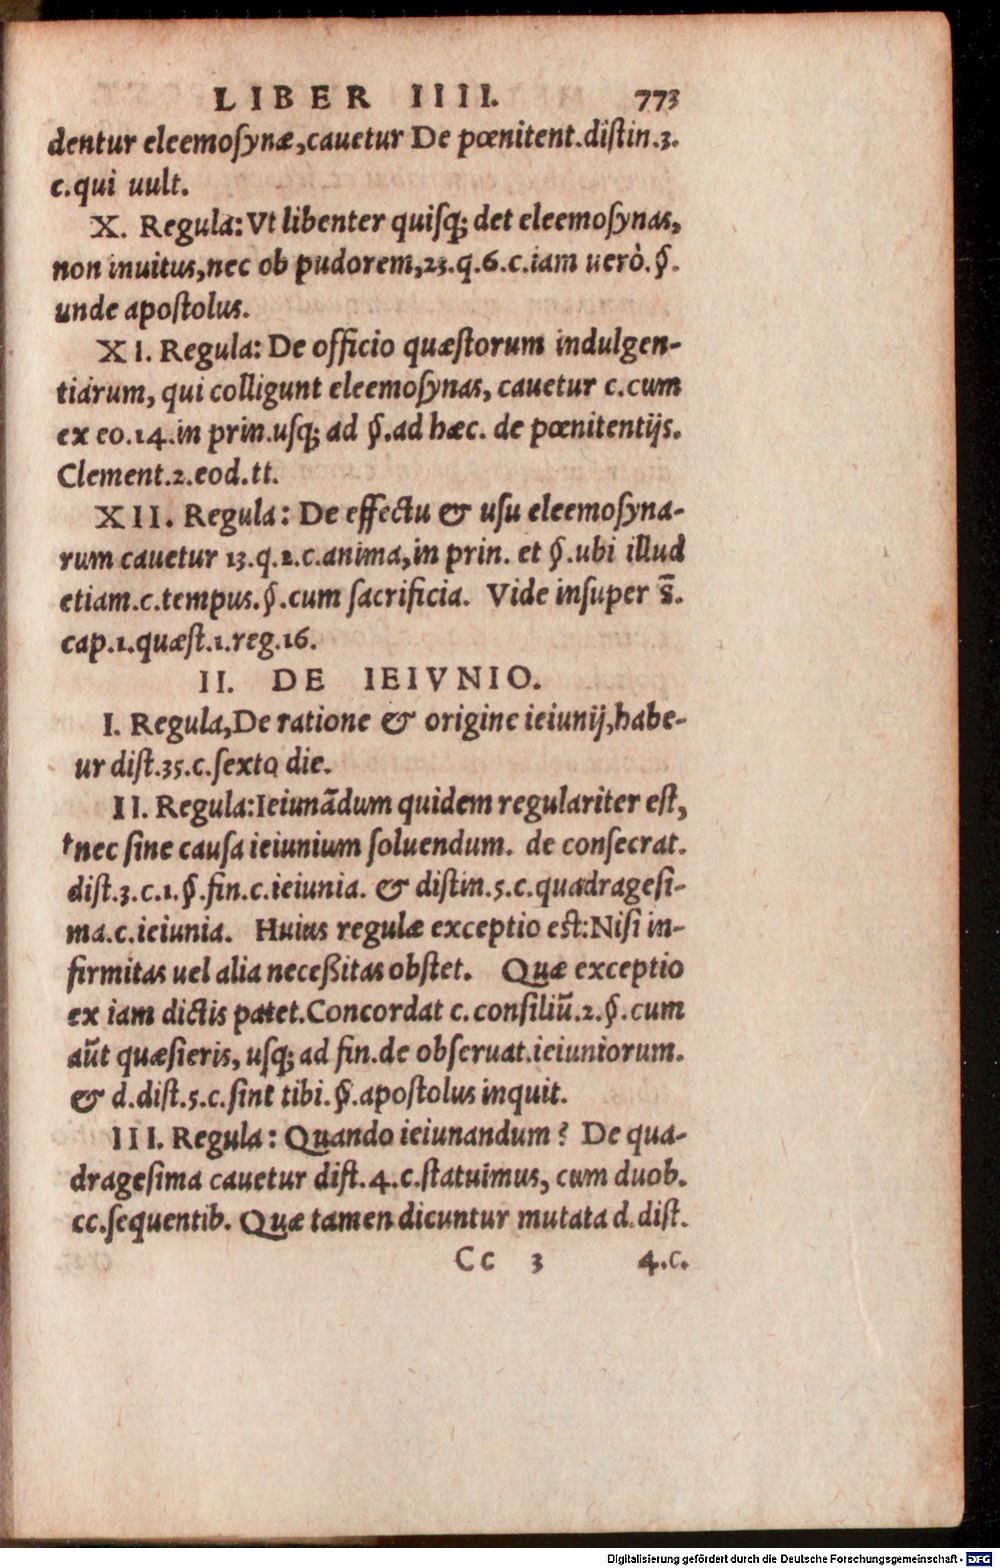 LIBER IIII. 773
dentur eleemoſynæ, cauetur De pœnitent. diſtin. 3.
c. qui uult.
X. Regula: Vt libenter quiſq; det eleemoſynas,
non inuitus, nec ob pudorem, 23. q. 6. c. iam uerò. §.
unde apoſtolus.
XI. Regula: De officio quæſtorum indulgen-
tiarum, qui colligunt eleemoſynas, cauetur c. cum
ex eo. 14. in prin. uſq; ad §. ad hæc. de pœnitentijs.
Clement. 2. eod. tt.
XII. Regula: De effectu & uſu eleemoſyna-
rum cauetur 13. q. 2. c. anima, in prin. et §. ubi illud
etiam. c. tempus. §. cum ſacrificia. Vide inſuper s̄.
cap. 1. quæſt. 1. reg. 16.
II. DE IEIVNIO.
I. Regula, De ratione & origine ieiunij, habe-
ur diſt. 35. c. ſexto die.
II. Regula: Ieiunãdum quidem regulariter eſt,
tnec ſine cauſa ieiunium ſoluendum. de conſecrat.
diſt. 3. c. 1. §. fin. c. ieiunia. & diſtin. 5. c. quadrageſi-
ma. c. ieiunia. Huius regulæ exceptio eſt: Niſi in-
firmitas uel alia neceßitas obſtet. Quæ exceptio
ex iam dictis patet. Concordat c. conſiliũ. 2. §. cum
aũt quæſieris, uſq; ad fin. de obſeruat. ieiuniorum.
& d. diſt. 5. c. ſint tibi. §. apoſtolus inquit.
III. Regula: Quando ieiunandum? De qua-
drageſima cauetur diſt. 4. c. ſtatuimus, cum duob.
cc. ſequentib. Quæ tamen dicuntur mutata d. diſt.
Cc 3 4. c.
Digitalisierung gefördert durch die Deutsche Forschungsgemeinschaft - DFG